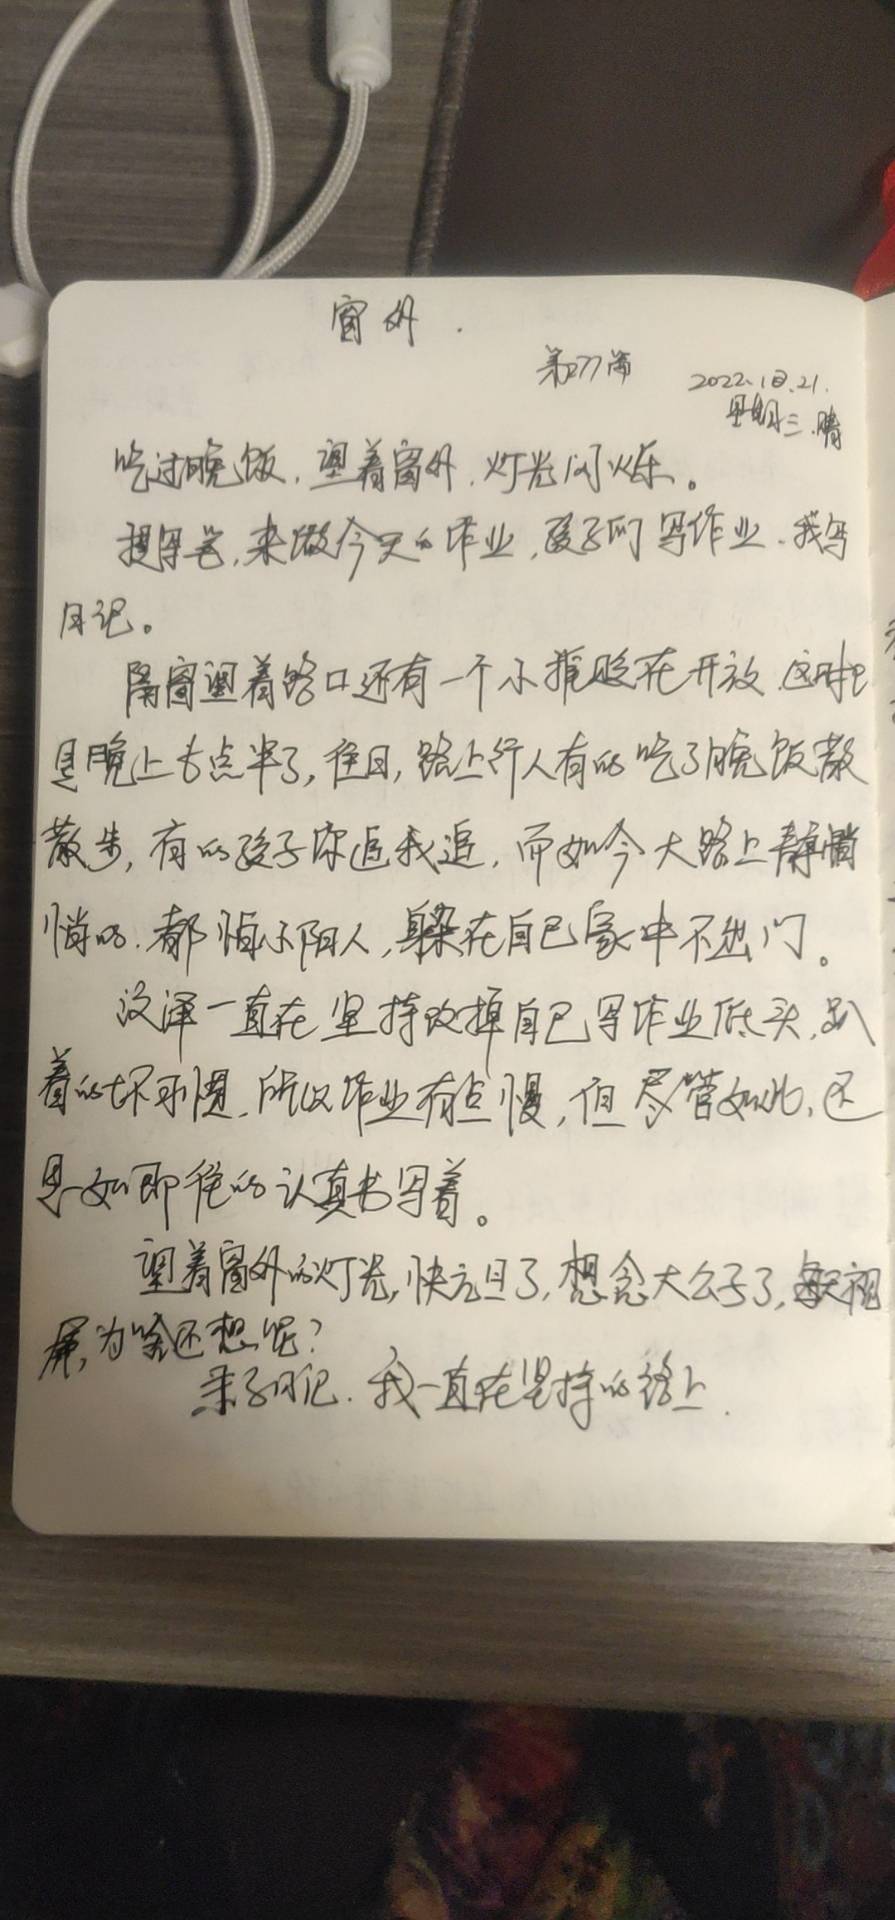 窗外.
第277篇
2022.12.21.
星期三.晴
吃过晚饭,望着窗外,灯光闪烁。
提写笔,来做今天的作业,孩子们写作业、我写
日记。
隔窗望着路口还有一个小摊贩在开放 这时
是晚上七点半了,往日,路上行人有的吃了晚饭散
散步,有的孩子你追我追,而如今大路上静悄
悄的.都怕小阳人,躲在自己家中不出门。
汶泽一直在坚持改掉自己写作业低头,趴
着的坏习惯,所以作业有点慢,但尽管如此,还
是如即往的认真书写着。
望着窗外的灯光,快元旦了,想念大公子了,每天视
屏,为啥还想呢?
亲子日记.我一直在坚持的路上.